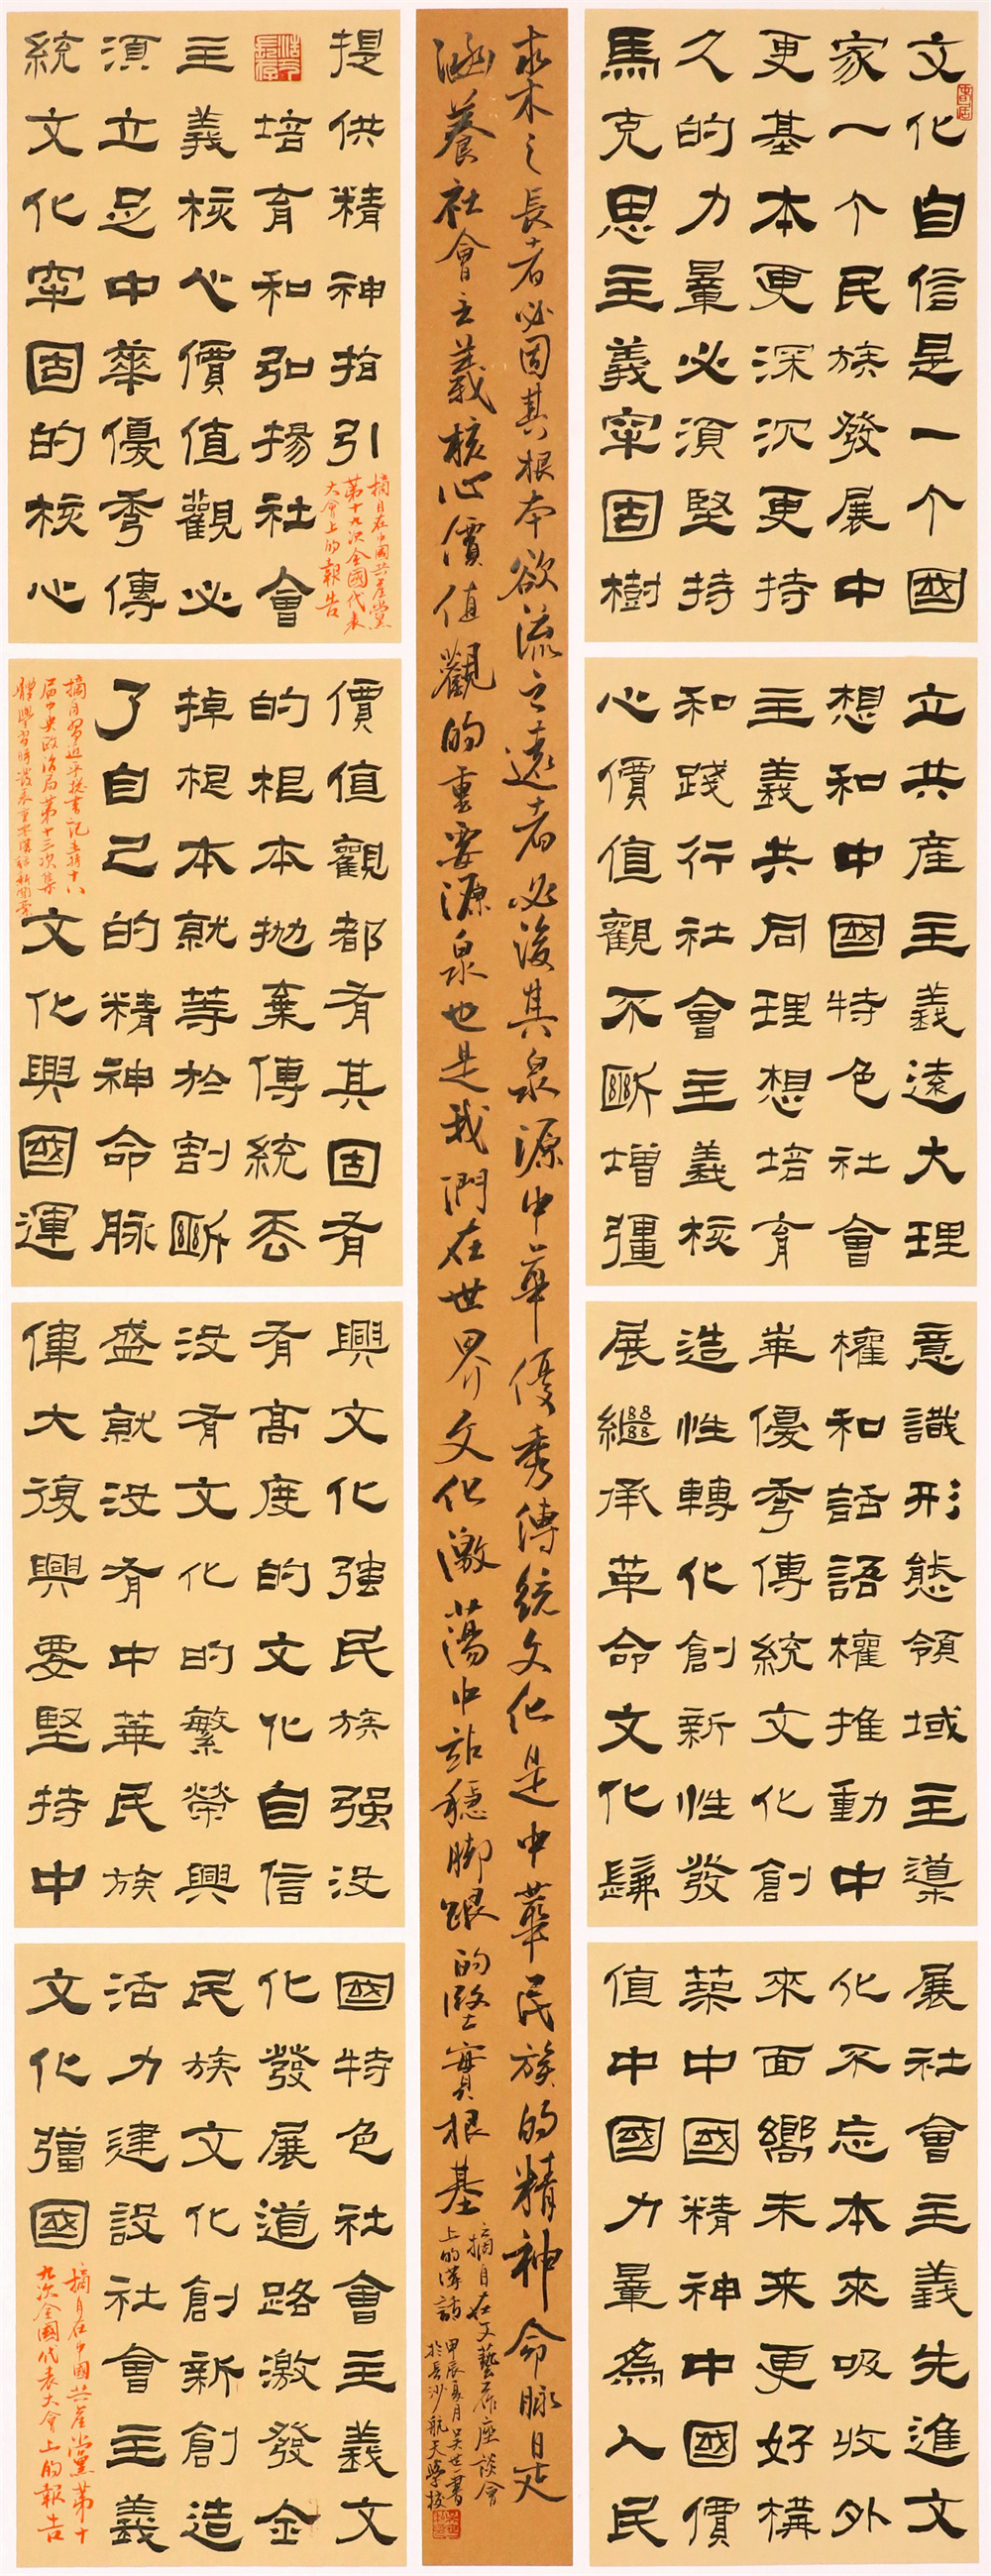 文化自信是一个國
家一个民族發展中
更基本更深沉更持
久的力量必須堅持
馬克思主義牢固樹
立共產主義遠大理
想和中國特色社會
主義共同理想培育
和踐行社會主義核
心價值觀不斷增彊
意識形態領域主導
權和話語權推動中
華優秀傳統文化創
造性轉化創新性發
展繼承革命文化
展社會主義先進文
化不忘本來吸收外
來面嚮未来更好構
築中國精神中國價
值中國力量爲人民
求木之長者必固其根本欲流之遠者必浚其泉源中華優秀傳統文化是中華民族的精神命脉是
涵養社會主義核心價值觀的重要源泉也是我們在世界文化激蕩中站穩脚跟的堅實根基
摘自在文藝工作座談會
上的講話
甲辰夏月吴世一書
於長沙航天學校
提供精神指引
摘自在中國共產黨
第十九次全國代表
大會上的報告
培育和弘揚社會
主義核心價值觀必
須立足中華優秀傳
統文化牢固的核心
價值觀都有其固有
的根本抛棄傳統丟
掉根本就等於割斷
了自己的精神命脈
摘自習近平總書記主持十八
屆中央政治局第十三次集
體學習時
文化興國運
興文化強民族强没
有高度的文化自信
没有文化的繁榮興
盛就没有中華民族
偉大復興要堅持中
國特色社會主義文
化發展道路激發全
民族文化創新創造
活力建設社會主義
文化彊國
摘自在中國共產黨第十
九次全國代表大會上的報告